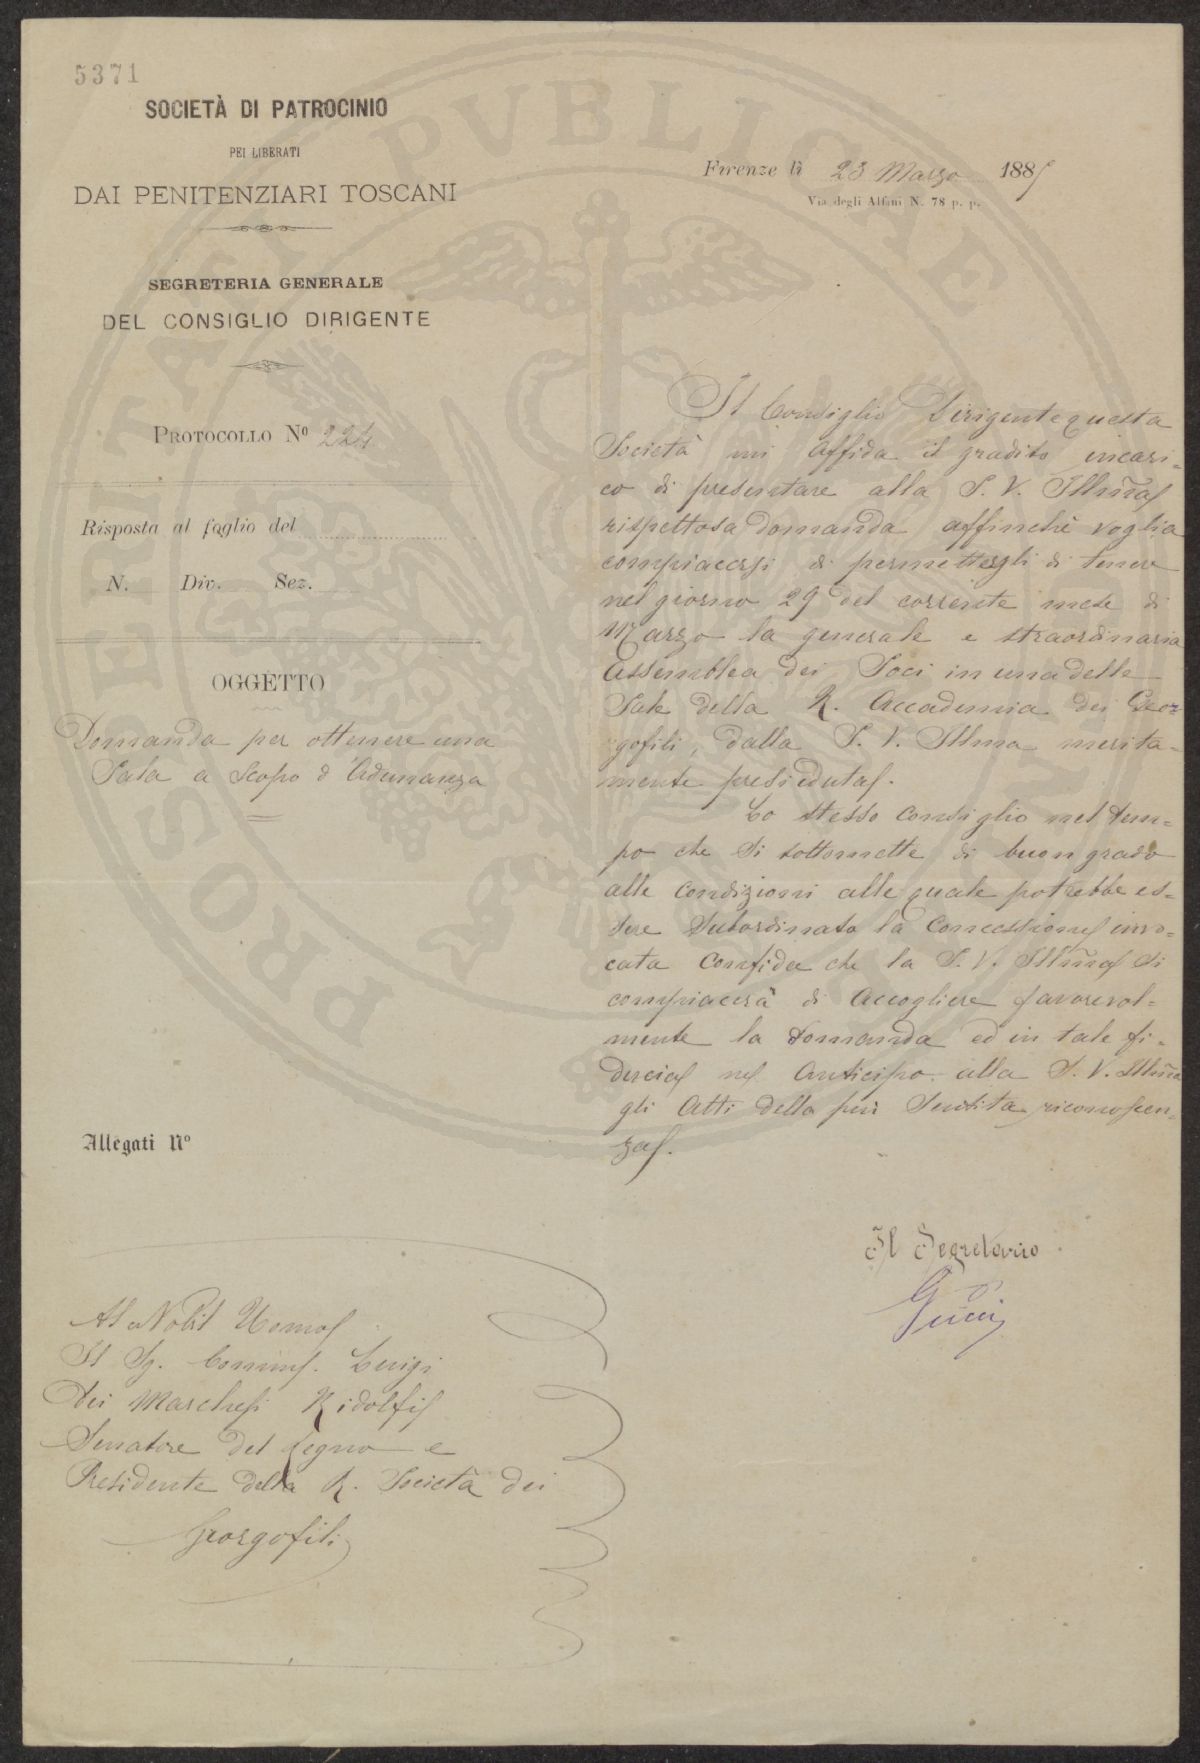 5371
SOCIETÀ DI PATROCINIO
PEI LIBERATI
DAI PENITENZIARI TOSCANI
SEGRETERIA GENERALE
DEL CONSIGLIO DIRIGENTE
PROTOCOLLO Nº 224
Risposta al foglio del
N. Div. Sez.
OGGETTO
Domanda per ottenere una
Sala a Scopo d'Adunanza
Allegati Nº
Al Nobil Uomo
Il Sg. Comm. Luigi
Dei Marchesi Ridolfi
Senatore del Regno e
Presidente della R. Società dei
Georgofili
Firenze lì 23 Marzo 1885
Via degli Alfani N. 78 p. p.
Il Consiglio Dirigente questa
Società mi affida il gradito incari-
co di presentare alla S. V. Illm̃a
rispettosa domanda affinchè voglia
compiacersi di permettergli di tenere
nel giorno 29 del corrente mese di
Marzo la generale e straordinaria
Assemblea dei Soci in una delle
Sale della R. Accademia dei Geor-
gofili, dalla S. V. Illma merita-
mente presieduta.
Lo stesso Consiglio nel tem-
po che si sottomette di buon grado
alle condizioni alle quale potrebbe es-
sere Subordinato la Concessione invo-
cata Confida che la S. V. Illm̃a si
compiacerà di Accogliere favorevol-
mente la domanda ed in tale fi-
ducia ne Anticipo alla S. V. Illm̃a
gli Atti della più Sentita riconoscen-
za.
Il Segretario
Gucci
PROSPERITATI PVBLICAE